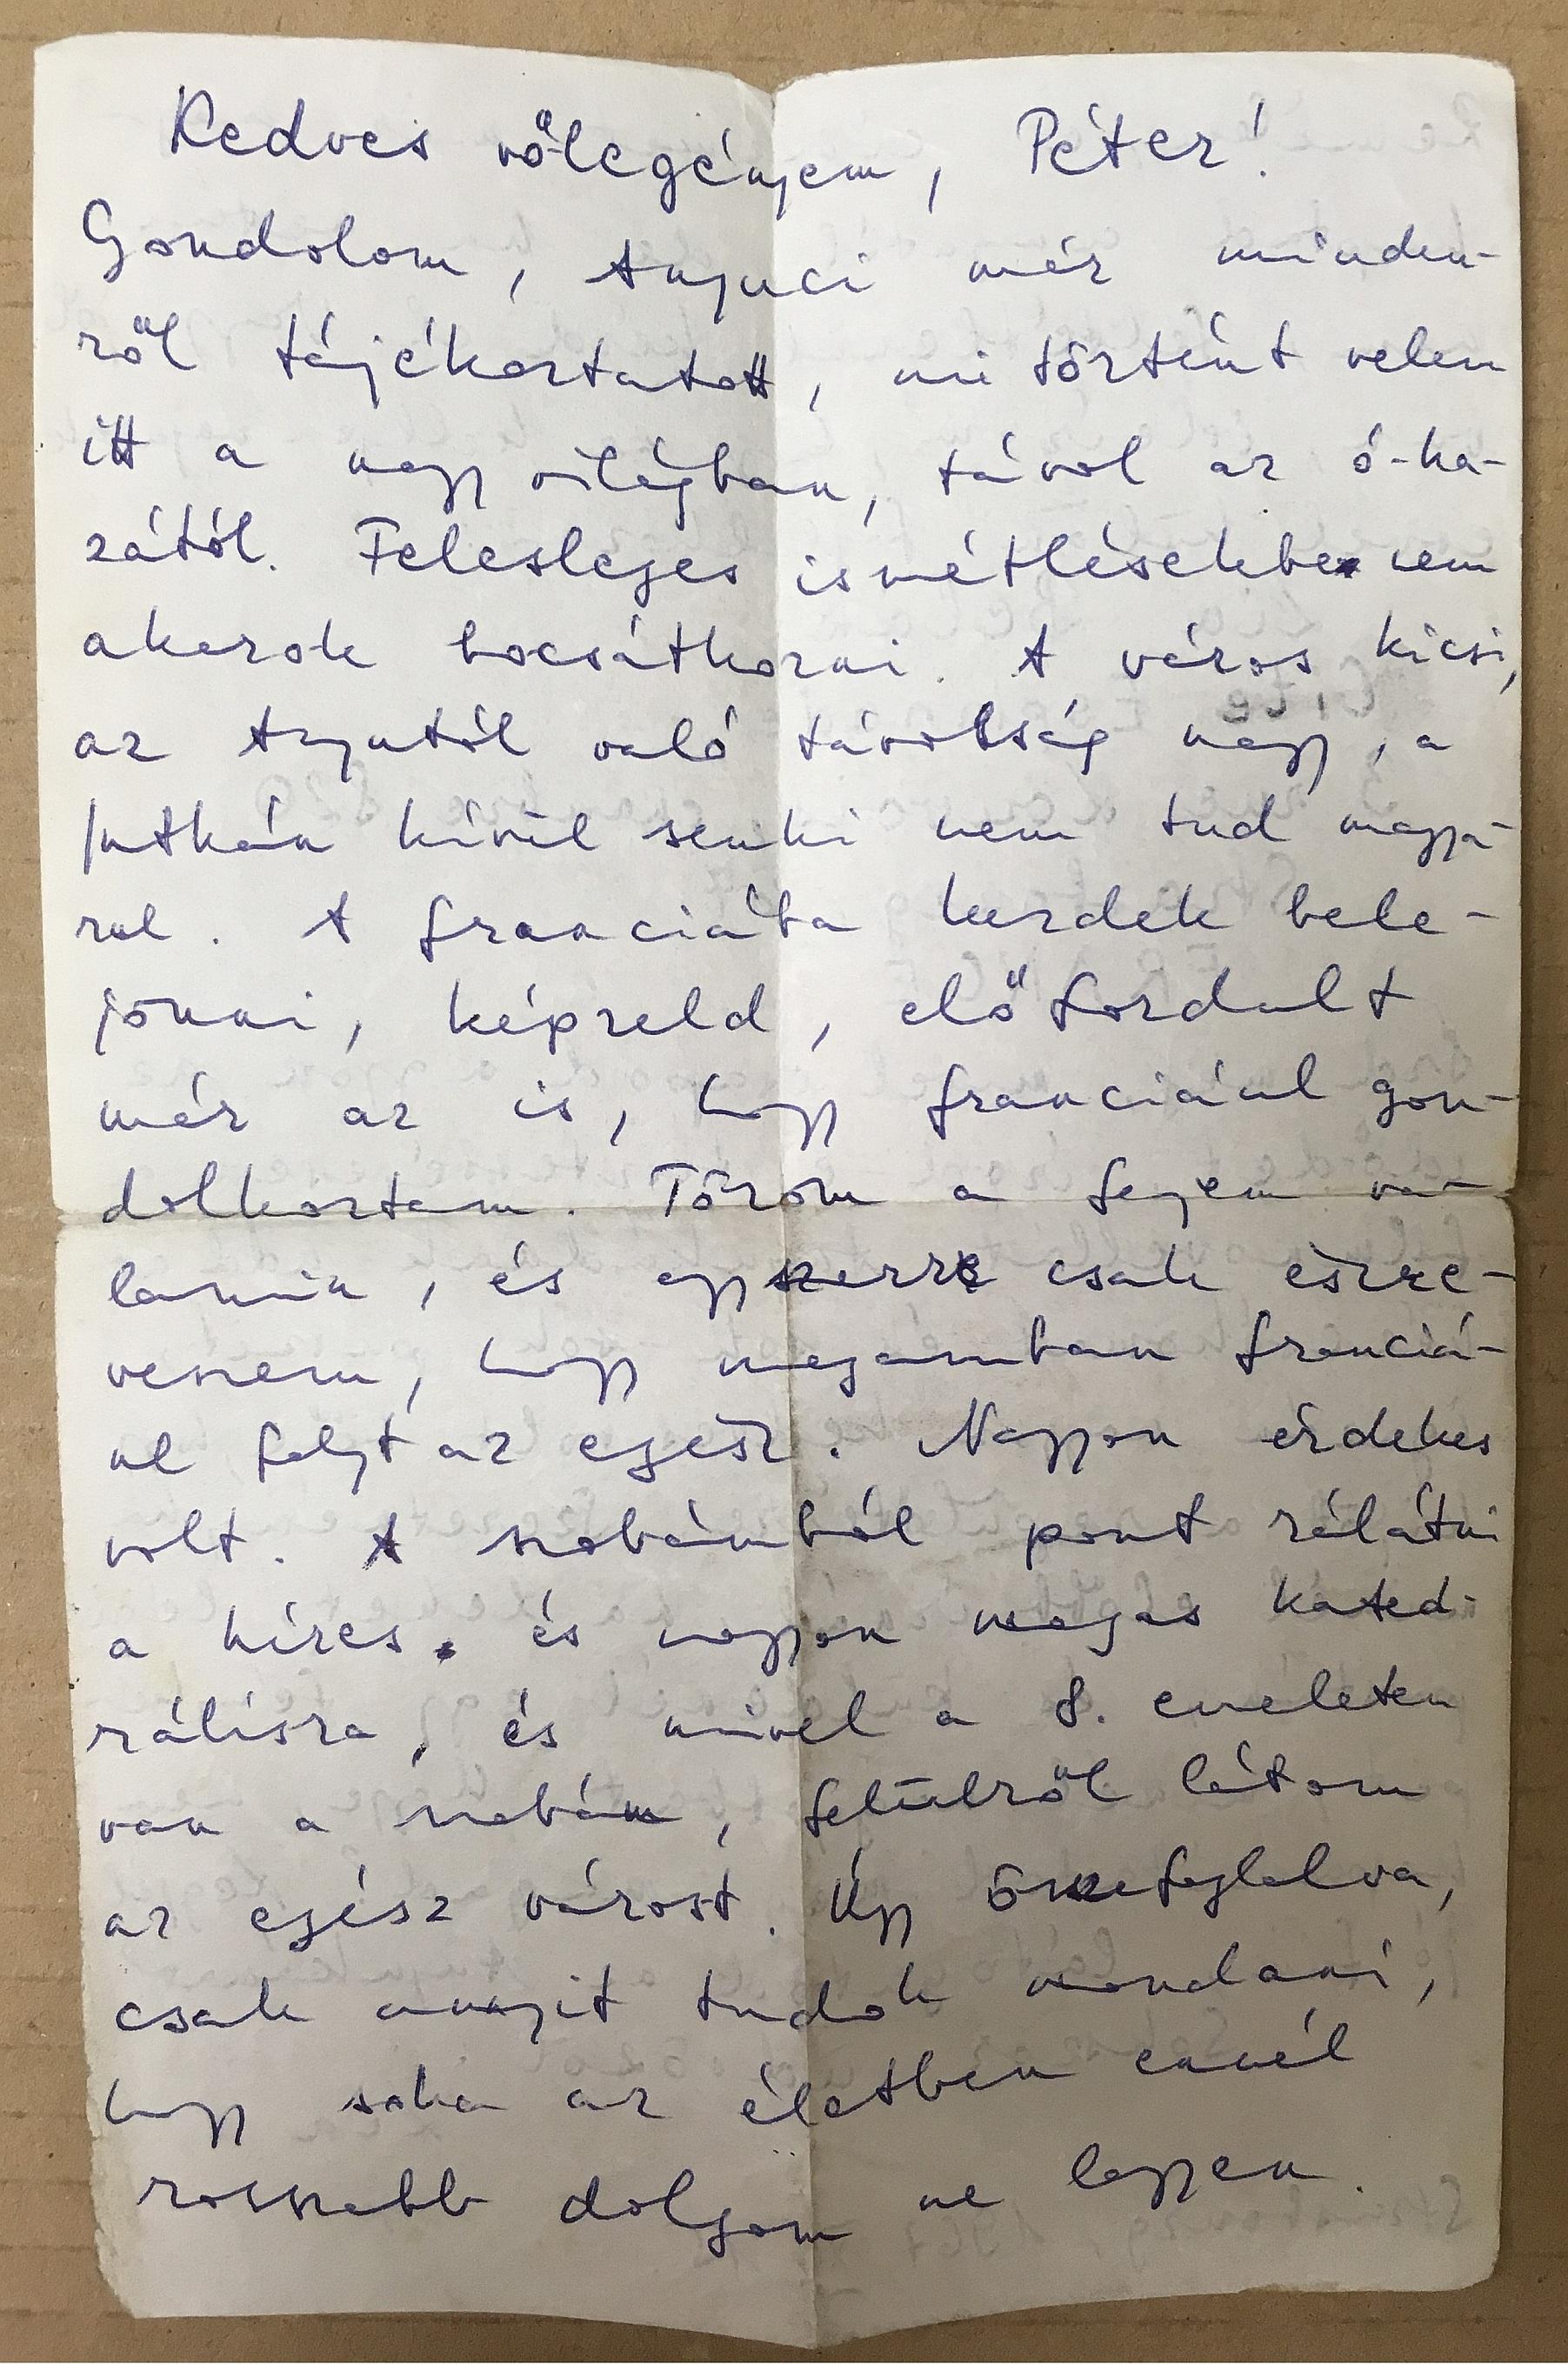 Kedves vőlegényem, Péter!
Gondolom, Anyuci már minden-
ről tájékoztatott, mi történt velem
itt a nagy világban, távol az ó-ha-
zától. Felesleges ismétlésekbe nem
akarok bocsátkozni. A város kicsi,
az Anyutól való távolság nagy, a
Jutkán kívül senki nem tud magya-
rul. A franciába kezdek bele-
jönni, képzeld, előfordult
már az is, hogy franciául gon-
dolkoztam. Töröm a fejem va-
lamin, és egyszerre csak észre-
veszem, hogy magamban franciá-
ul folyt az egész. Nagyon érdekes
volt. A szobámból pont rálátni
a híres és nagyon magas kated-
rálisra, és mivel a 8. emeleten
van a szobám, felülről látom
az egész várost. Úgy összefoglalva,
csak annyit tudok mondani,
hogy soha az életben ennél
rosszabb dolgom ne legyen.